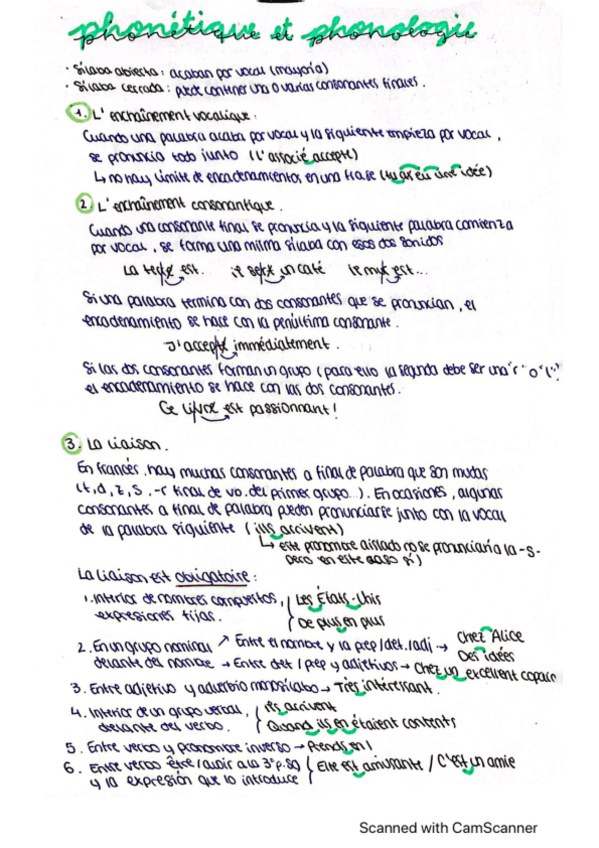 phonétique et phonologie
· Sílaba abierta: acaban por vocal (mayoría)
· Sílaba cerrada: puede contener una o varias consonantes finales.
1. L'enchaînement vocalique.
Cuando una palabra acaba por vocal y la siguiente empieza por vocal,
se pronuncia todo junto (L'associé accepte)
↳ no hay límite de encadenamientos en una frase (tu as eu une idée)
2. L'enchaînement consonantique.
Cuando una consonante final se pronuncia y la siguiente palabra comienza
por vocal, se forma una misma sílaba con esos dos sonidos
La texte est. je sept un café le mur est...
Si una palabra termina con dos consonantes que se pronuncian, el
encadenamiento se hace con la penúltima consonante.
J'accepte immédiatement.
Si las dos consonantes forman un grupo (para ello la segunda debe ser una "r" o "l")
el encadenamiento se hace con las dos consonantes.
Ce livre est passionnant!
3. La liaison.
En francés, hay muchas consonantes a final de palabra que son mudas
(t, d, z, s, -r final de vb. del primer grupo...). En ocasiones, algunas
consonantes a final de palabra pueden pronunciarse junto con la vocal
de la palabra siguiente (ills arrivent)
↳ este pronombre aislado no se pronunciaría la -s-
pero en este caso sí)
La liaison est obligatoire:
1. Interior de nombres compuestos, Les États-Unis
expresiones fijas. De plus en plus
2. En un grupo nominal ↗ Entre el nombre y la pep/det./adj → Chez Alice
delante del nombre → Entre det / pep y adjetivos → Des idées
Chez un excellent copain
3. Entre adjetivo y adverbio monosílabo → Très intéressant.
4. Interior de un grupo verbal, Ils arrivent
delante del verbo. Quand ils en étaient contents
5. Entre verbo y pronombre inverso → Prends en!
6. Entre verbo être/avoir a la 3ª p.sg Elle est amusante / C'est un amie
y la expresión que lo introduce
Scanned with CamScanner